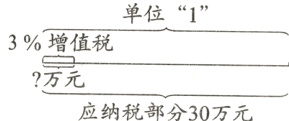 单位“1”
3%增值税
?万元
应纳税部分30万元